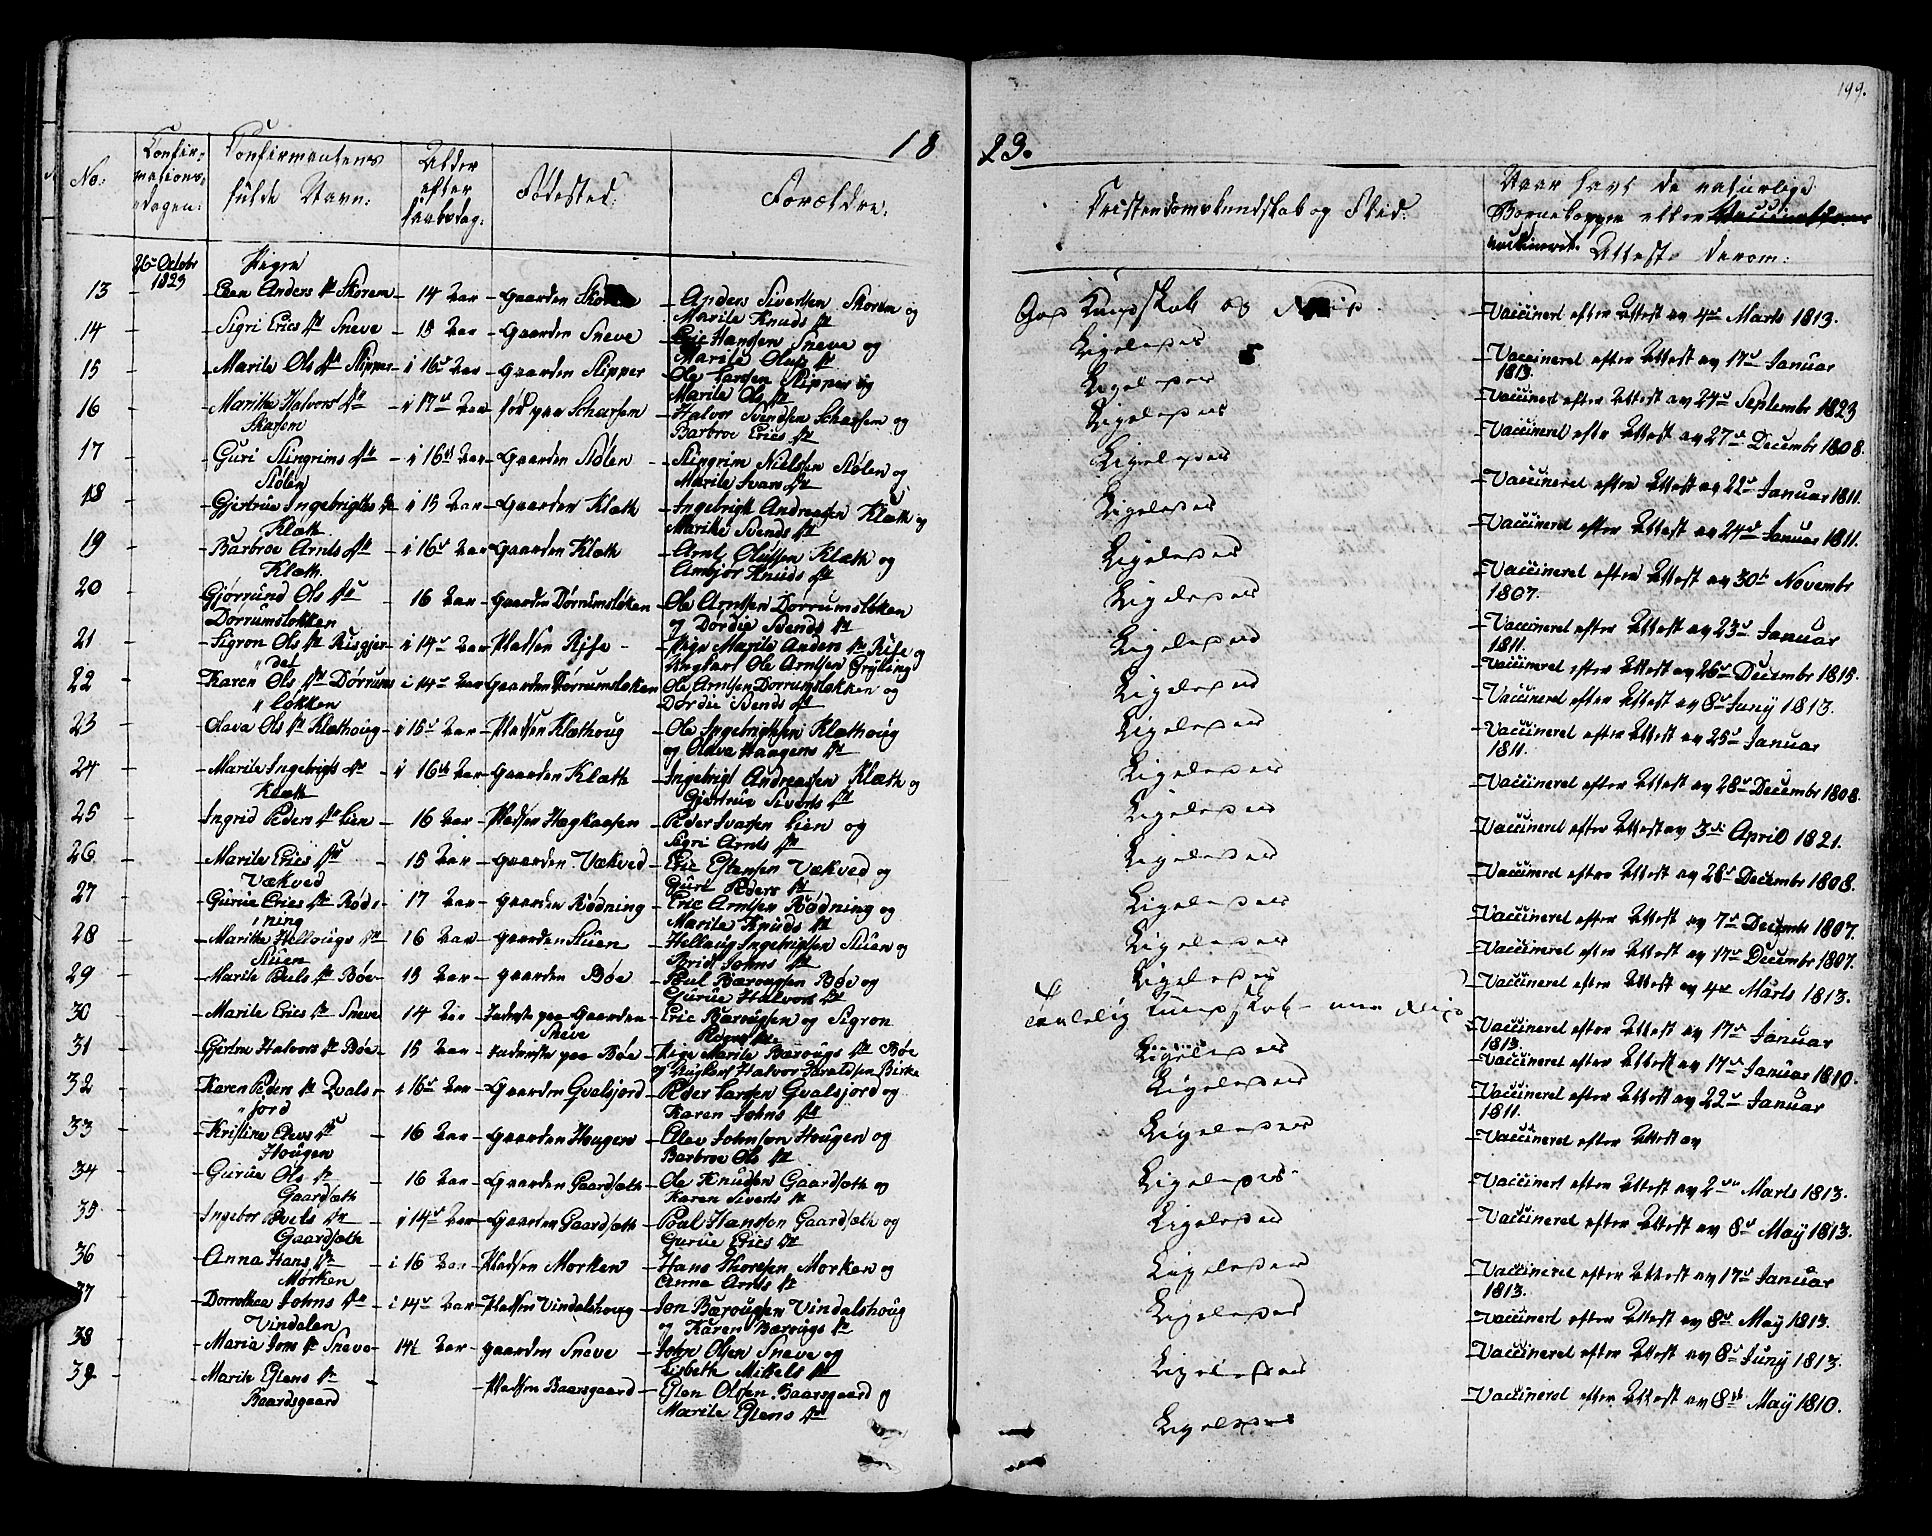 199.
18 23.
No: Confir= mations= dagen: Confirmantens fulde Navn: Alder efter Daabsdag: Fødested: Forældre: Christendomskundskab og Flid: Naar havt de naturlige Børnekopper eller vaccineret. Attest derom:
26de Octobr 1823 Piger
13 - Anders Dr Skorem - 14 Aar - Gaarden - Anders Sivertsen Skorem og Marite Knuds Dr God Kundskab og Flid. - Vaccinert efter Attest av 4de Marts 1813.
14 - Sigri Erics Dr Sneve - 15 Aar - Gaarden Sneve - Eric Hansen Sneve og Marite Olufs Dr Ligeledes - Vaccineret efter Attest av 17de Januar 1813.
15 - Marite Ols Dr Slipper - i 16de Aar - Gaarden Slipper - Ole Larsen Slipper og Marite Ols Dr Ligeledes - Vaccinert efter Attest av 27de Septembr 1823
16 - Marithe Halvors Dr Skarsem - i 17de Aar - fød paa Scharsem - Halvor Svendsen Scharsem og Barbroe Erics Dr Ligeledes - Vaccineret efter Attest av 27de Decembr 1808.
17 - Guri Stingrims Dr Stølen - i 16de Aar - Gaarden Stølen - Stingrim Nielsen Stølen og Marite Ivars Dr Ligeledes - Vaccineret efter Attest av 22de Januar 1811.
18 - Gjertrue Ingebrigts Dr Klæth - i 15 Aar - Gaarden Klæth - Ingebrigt Andreasen Klæth og Marithe Svends Dr Ligeledes - Vaccineret efter Attest av 24de Januar 1811.
19 - Barbroe Arnts Dr Klæth. - i 16de Aar - Gaarden Klæth - Arnt Olufsen Klæth og Ambjør Knuds Dr Ligeledes - Vaccineret efter Attest av 30te Novembr 1807.
20 - Gjørrund Ols Dr Dorrumsløkken 16 Aar - Gaarden Dørrumsløken - Ole Arntsen Dørrumsløken og Dordie Svends Dr Ligeledes - Vaccineret efter Attest av 23de Januar 1811.
21 - Sigron Ols Dr Risgjer- det - i 14de Aar - Pladsen Rise - Pige Marite Anders Dr Rise og Ungkarl Ole Arntsen Gryting Ligeledes - Vaccineret efter Attest av 26de Decembr 1815.
22 - Karen Ols Dr Dørrums løkken i 14de Aar - Gaarden Dørrumsløken - Ole Arntsen Dorrumsløkken og Dordie Svends Dr Ligeledes - Vaccineret efter Attest av 8de Juny 1813.
23 - Olava Ols Dr Klæthoug - i 15de Aar - Pladsen Klæthoug - Ole Ingebrigtsen Klæthoug og Olava Haagens Dr Ligeledes - Vaccineret efter Attest av 25de Januar 1811.
24 - Marite Ingebrigts Dr Klæth - i 16de Aar - Gaarden Klæth - Ingebrigt Andreasen Klæth og Gjertrue Siverts Dr Ligeledes - Vaccineret efter Attest av 28de Decembr 1808.
25 - Ingrid Peders Dr Lien - 16 Aar - Pladsen Hægkaasen - Peder Ivarsen Lien og Sigri Arnts Dr Ligeledes - Vaccineret efter Attest av 3die April 1821.
26 - Marite Erics Dr Vækved - 15 Aar - Gaarden Vækved - Eric Estensen Vækved og Guri Peders Dr Ligeledes - Vaccineret efter Attest av 28de Decembr 1808.
27 - Gurue Erics Dr Rød- ning - 17 Aar - Gaarden Rødning - Eric Arntsen Rødning og Marite Knuds Dr Ligeledes - Vaccineret efter Attest av 7de Decembr 1807.
28 - Marithe Hellougs Dr Stuen - 16 Aar - Gaarden Stuen - Helloug Ingebrigtsen Stuen og Brid Johns Dr Ligeledes - Vaccineret efter Attest av 17de Decembr 1807.
29 - Marite Pouls Dr Bøe - 15 Aar - Gaarden Bøe - Poul Bærougsen Bøe og Gurue Halvors Dr Ligeledes - Vaccineret efter Attest av 4de Marts 1813.
30 - Marite Erics Dr Sneve - 14 Aar - Inderste paa Gaarden Sneve - Eric Bærougsen og Sigron Dr Taalelig Kundskab - men Flid - Vaccineret efter Attest av 17de Januar 1813.
31 - Gjertru Halvors Dr Bøe - 15 Aar - Inderste paa Bøe - Pige Marite Bærougs Dr Bøe og Ungkarl Halvor Haraldsen Birke Ligeledes - Vaccineret efter Attest av 17de Januar 1810.
32 - Karen Peders Dr Qvals- jord - i 16de Aar - Gaarden Gvalsjord - Peder Larsen Gvalsjord og Karen Johns Dr Ligeledes - Vaccineret efter Attest av 22de Januar 1811.
33 - Kristine Elevs Dr Hougen - 16 Aar - Gaarden Hougen - Elev Johnson Hougen og Barbroe Ols Dr Ligeledes - Vaccineret efter Attest av
34 - Gurue Ols Dr Gaardsæth - 16 Aar - Gaarden Gaardsæth - Ole Knudsen Gaardsæth og Karen Siverts Dr Ligeledes - Vaccinert efter Attest av 2den Marts 1813.
35 - Ingebor Povels Dr Gaardsæth - i 14de Aar - Gaarden Gaardsæth - Poul Hansen Gaardsæth og Gurue Erics Dr Ligeledes - Vaccineret efter Attest av 8de May 1813.
36 - Anna Hans Dr Morken - i 16 Aar - Pladsen Morken - Hans Thoresen Morken og Anne Arnts Dr Ligeledes - Vaccineret efter Attest av 17de Januar 1813.
37 - Dorrothea Johns Dr Vindalen - i 14de Aar - Pladsen Vindalshoug - Jon Bærougsen Vindalshoug og Karen Bærougs Dr Ligeledes - Vaccinert efter Attest av 8de May 1813.
38 - Maria Jons Dr Sneve - 14½ Aar - Gaarden Sneve - John Olsen Sneve og Lisbeth Mikels Dr Ligeledes - Vaccineret efter Attest av 8de Juny 1813.
39 - Marite Estens Dr Baardsgaard - - Pladsen Baarsgaard - Esten Olsen Baarsgaard og Marite Estens Dr Ligeledes - Vaccineret efter Attest av 8de May 1810.